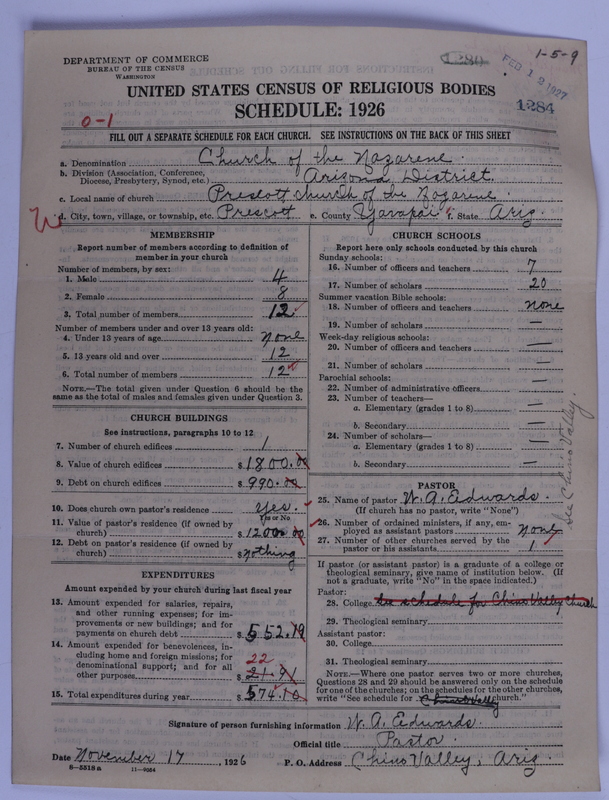 DEPARTMENT OF COMMERCE
BUREAU OF THE CENSUS
WASHINGTON
1280
FEB 12 1927
1-5-9
1284
UNITED STATES CENSUS OF RELIGIOUS BODIES
SCHEDULE: 1926
0-1
FILL OUT A SEPARATE SCHEDULE FOR EACH CHURCH. SEE INSTRUCTIONS ON THE BACK OF THIS SHEET
a. Denomination Church of the Nazarene.
b. Division (Association, Conference, Diocese, Presbytery, Synod, etc.) Arizona District
c. Local name of church Prescott church of the Nazarene.
d. City, town, village, or township, etc. Prescott e. County Yavapai f. State Ariz.
MEMBERSHIP
Report number of members according to definition of
member in your church
Number of members, by sex:
1. Male 4
2. Female 8
3. Total number of members 12
Number of members under and over 13 years old:
4. Under 13 years of age none
5. 13 years old and over 12
6. Total number of members 12
NOTE.—The total given under Question 6 should be
same as the total of males and females given under Question 3.
CHURCH BUILDINGS
See instructions, paragraphs 10 to 12
7. Number of church edifices 1
8. Value of church edifices $1800.00
9. Debt on church edifices $990.00
10. Does church own pastor's residence? yes.
Yes or No
11. Value of pastor's residence (if owned by
church) $1200 00
12. Debt on pastor's residence (if owned by
church) $nothing
EXPENDITURES
Amount expended by your church during last fiscal year
13. Amount expended for salaries, repairs,
and other running expenses; for im-
provements or new buildings; and for
payments on church debt $552.19
14. Amount expended for benevolences, in-
cluding home and foreign missions; for
denominational support; and for all
other purposes 22 $21.91
15. Total expenditures during year $574.10
CHURCH SCHOOLS
Report here only schools conducted by this church
Sunday schools:
16. Number of officers and teachers 7
17. Number of scholars 20
Summer vacation Bible schools:
18. Number of officers and teachers none
19. Number of scholars —
Week-day religious schools:
20. Number of officers and teachers —
21. Number of scholars —
Parochial schools:
22. Number of administrative officers —
23. Number of teachers—
a. Elementary (grades 1 to 8) —
b. Secondary —
24. Number of scholars—
a. Elementary (grades 1 to 8) —
b. Secondary —
See Chino Valley.
PASTOR
25. Name of pastor W. A. Edwards.
(If church has no pastor, write "None")
26. Number of ordained ministers, if any, em-
ployed as assistant pastors none
27. Number of other churches served by the
pastor or his assistants 1
If pastor (or assistant pastor) is a graduate of a college or
theological seminary, give name of institution below. (If
not a graduate, write "No" in the space indicated.)
Pastor:
28. College schedule for Chino Valley Church
29. Theological seminary
Assistant pastor:
30. College
31. Theological seminary
NOTE.—Where one pastor serves two or more churches,
Questions 28 and 29 should be answered only on the schedule
for one of the churches; on the schedules for the other churches,
write "See schedule for Chino Valley church."
Signature of person furnishing information W. A. Edwards.
Official title Pastor.
Date November 17, 1926 P. O. Address Chino Valley, Ariz.
8—5518a 11—9064